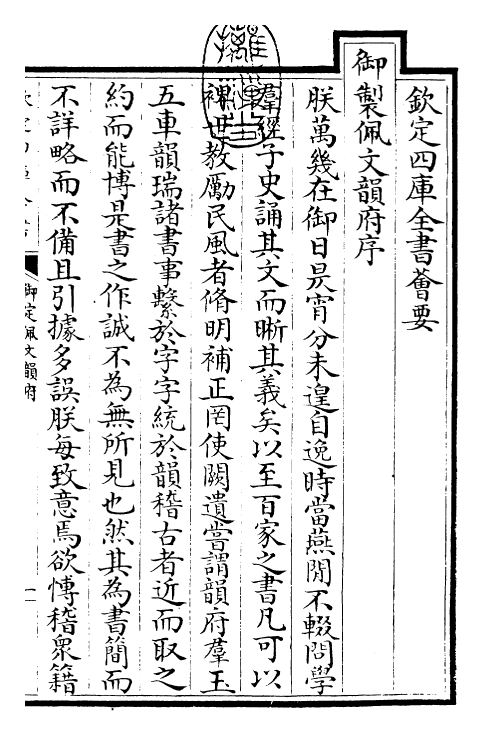 欽定四庫全書薈要
御製佩文韻府序
朕萬幾在御日昃宵分未遑自逸時當燕閒不輟問學
羣經子史誦其文而晰其義矣以至百家之書凡可以
裨世教勵民風者脩明補正罔使闕遺嘗謂韻府羣玉
五車韻瑞諸書事繫於字字統於韻稽古者近而取之
約而能博是書之作誠不為無所見也然其為書簡而
不詳略而不備且引據多誤朕每致意焉欲慱稽眾籍
御定佩文韻府
一